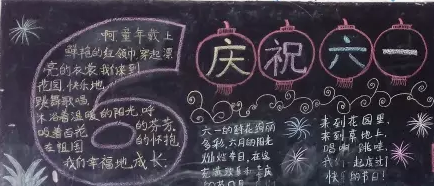 啊童年载上
鲜艳的红领巾穿起漂
亮的衣裳我们来到
花园,快乐地
跳舞歌唱,
沐浴着温暖的阳光,呼
吸着百花 的芬芳,
在祖国 的怀抱
我们幸福地成长
庆祝六一
六一的鲜花绚丽
多彩,六月的阳光
灿烂夺目,在这
来到花园里,
来到草地上,
唱啊 跳哇,
我们一起庆祝
快乐的节日!